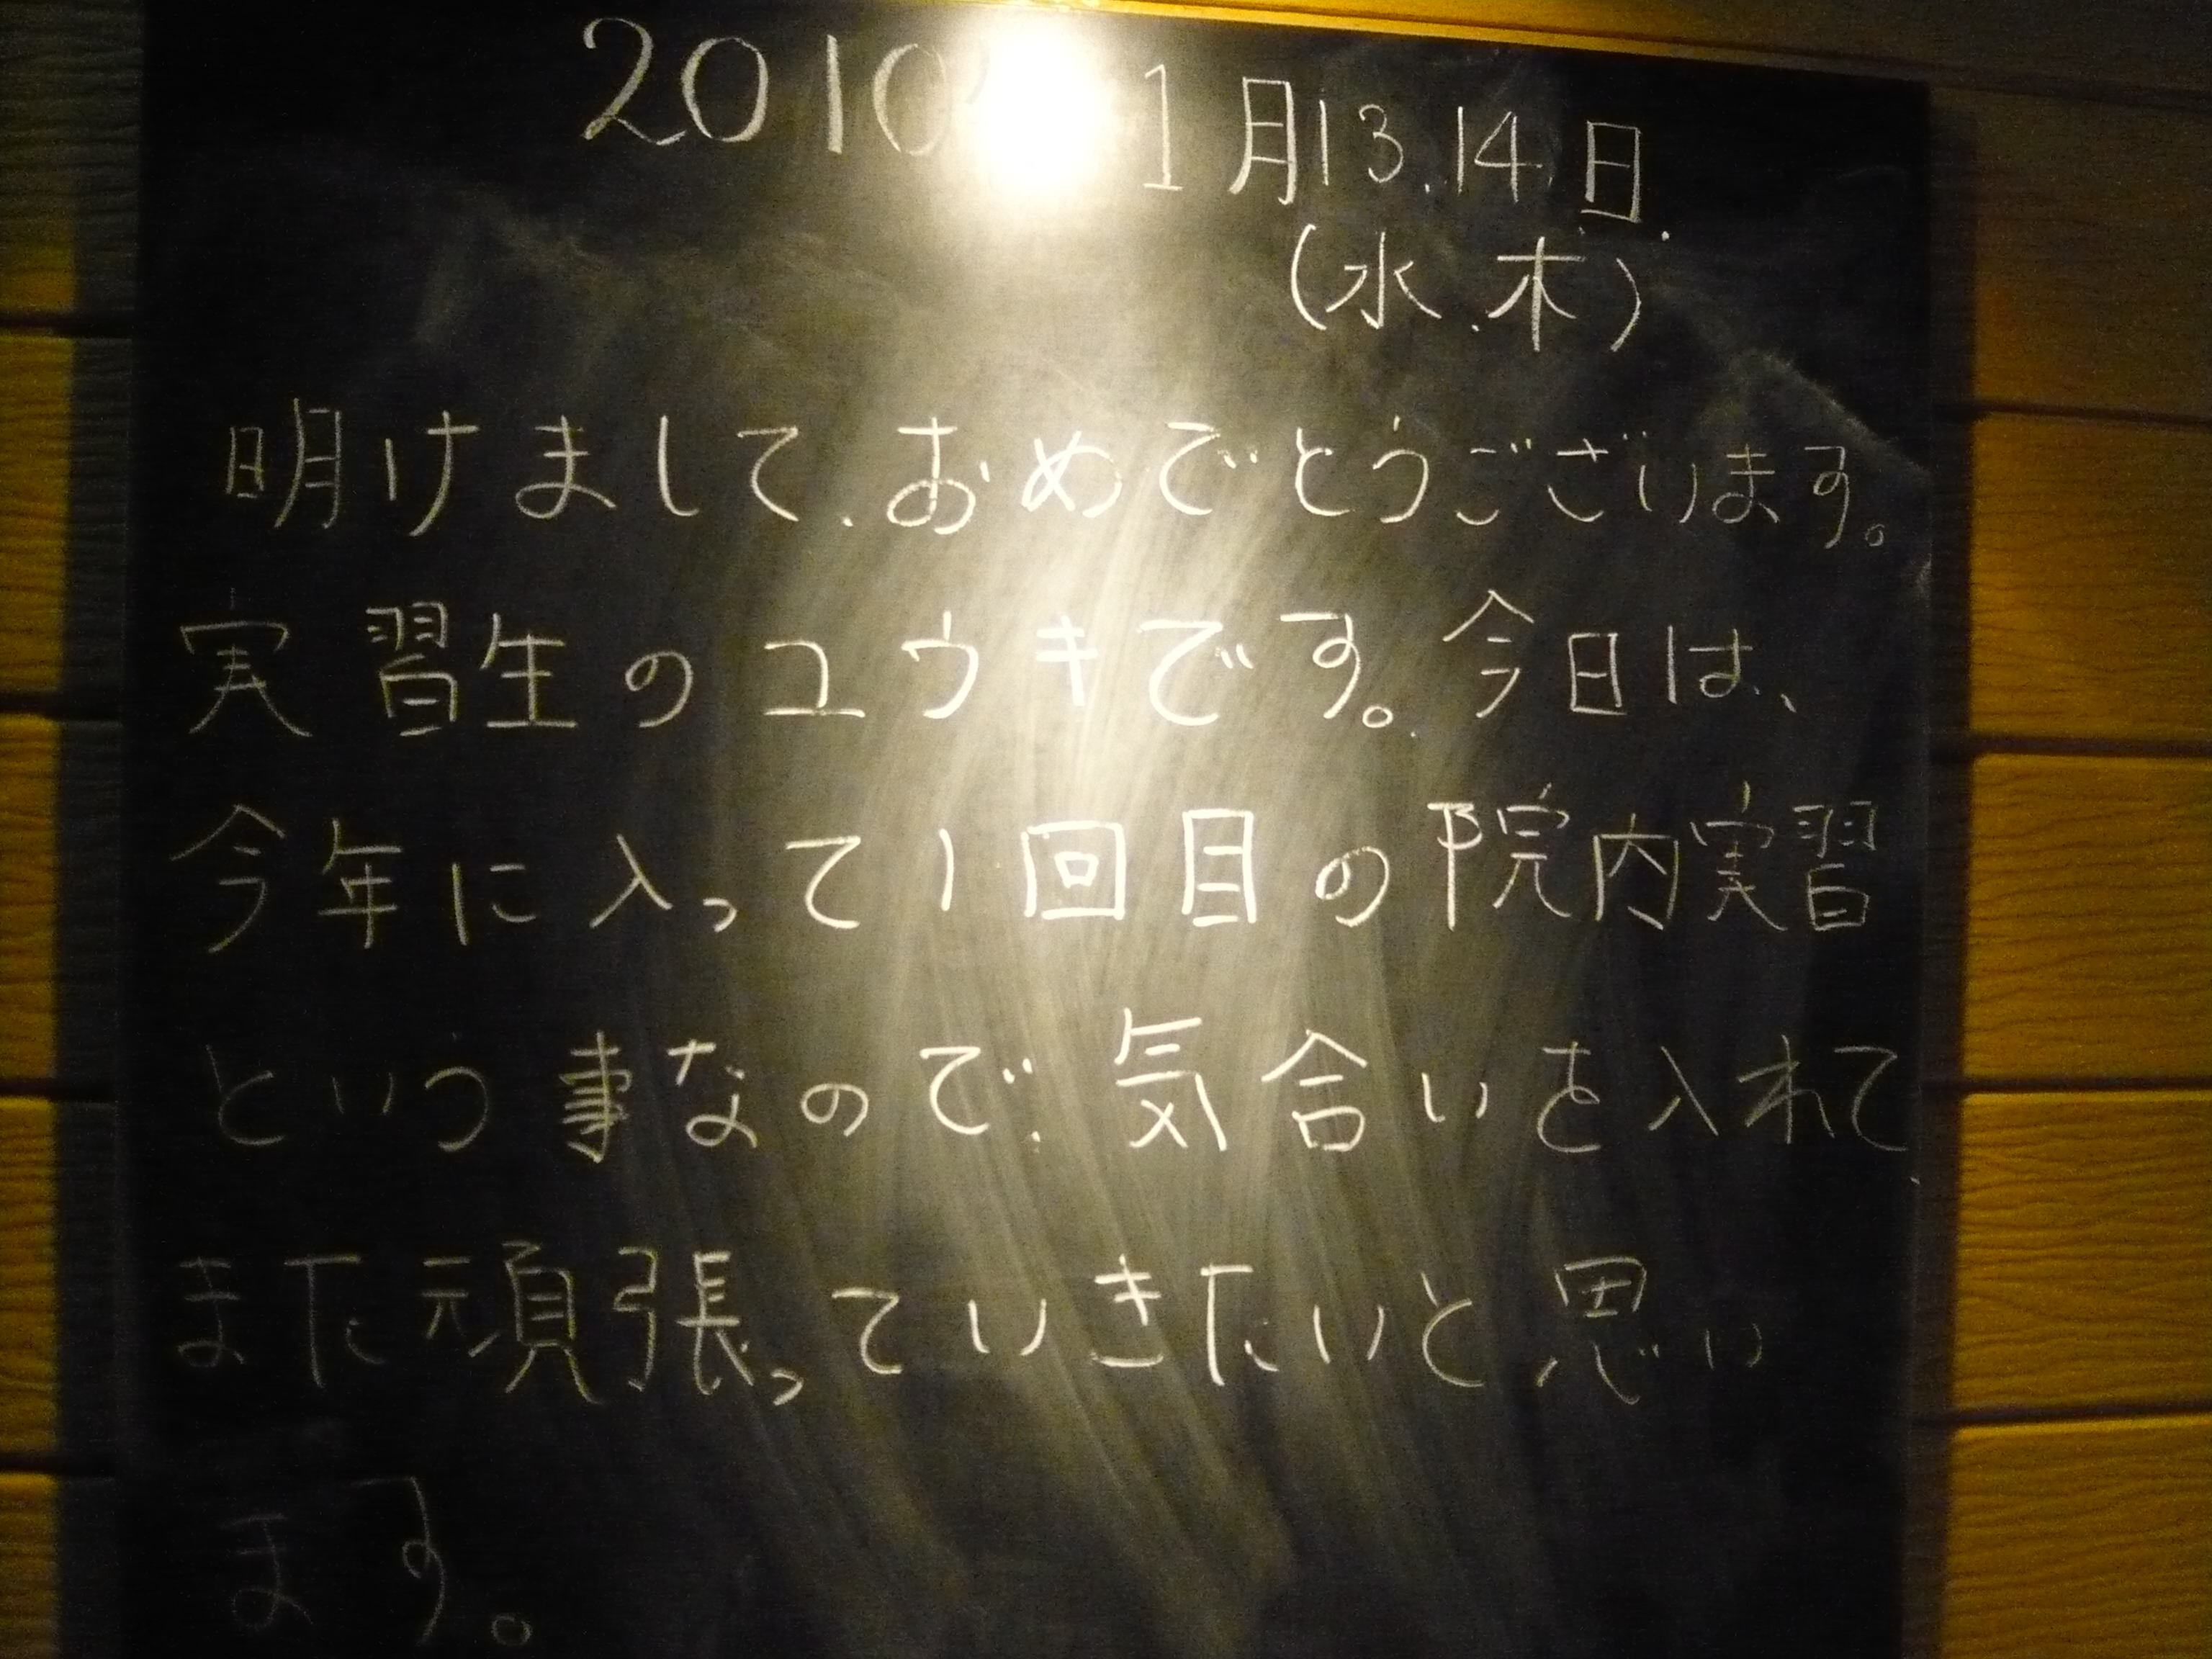 2010 1月13.14日
(水.木)
明けまして.おめでとうございます。
実習生のユウキです。今日は、
今年に入って1回目の院内実習
という事なので.気合いを入れて
また頑張っていきたいと思い
ます。